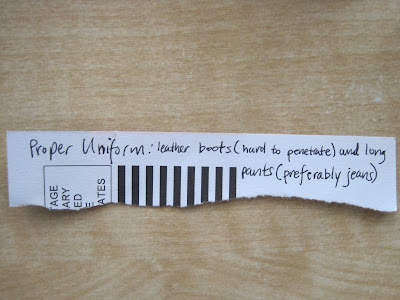 Proper Uniform: leather boots (hard to penetate) and long
pants (preferably jeans)
TAGE
ARY
ED
E
ATES